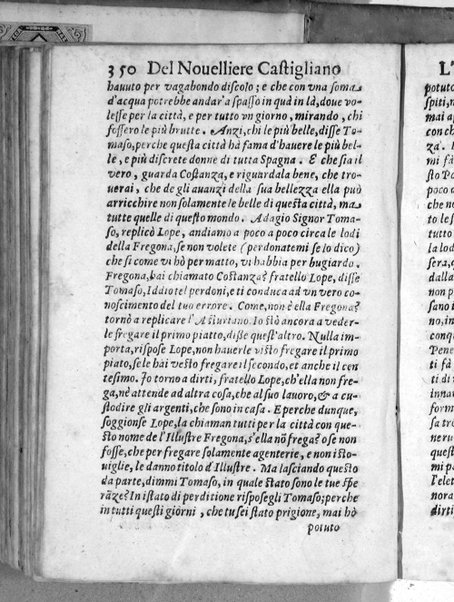 350 Del Nouelliere Castigliano
hauuto per vagabondo discolo; e che con vna soma
d'acqua potrebbe andar'a spasso in quà in là, doue vo-
lesse per la città, e per tutto vn giorno, mirando, chi
fossero le più brutte. Anzi, chi le più belle, disse To-
maso, perche questa città hà fama d'hauere le più bel-
le, e più discrete donne di tutta Spagna. E che sia il
vero, guarda Costanza, e riguardala bene, che tro-
uerai, che de gli auanzi della sua bellezza ella può
arricchire non solamente le belle di questa città, ma
tutte quelle di questo mondo. Adagio Signor Toma-
so, replicò Lope, andiamo a poco a poco circa le lodi
della Fregona, se non volete (perdonatemi se lo dico)
che sì come vi hò per matto, vi habbia per bugiardo.
Fregona, hai chiamato Costanza? fratello Lope, disse
Tomaso, Iddio te'l perdoni, e ti conduca ad vn vero co-
noscimento del tuo errore. Come, non è ella Fregona?
tornò a replicare l'Asturiano. Io stò ancora a veder-
le fregare il primo piatto, disse quest'altro. Nulla im-
porta, rispose Lope, non hauerle visto fregare il primo
piato, se le hai vesto fregare il secondo, et anche il cen
tesimo. Jo torno a dirti, fratello Lope, ch'ella non fre-
ga, nè attende ad altra cosa, che al suo lauoro, & a cu-
stodire gli argenti, che sono in casa. E perche dunque,
soggionse Lope, la chiaman tutti per la città con que-
sto nome de l'Illustre Fregona, s'ella nõ frega? o se non
fosse, che per fregare solamente agenterie, e non isto-
uiglie, le danno titolo d'Illustre. Ma lasciando questo
da parte, dimmi Tomaso, in quale stato sono le tue spe
rãze? In istato di perditione risposegli Tomaso; perche
in tutti questi giorni, che tu sei stato prigione, mai hò
potuto